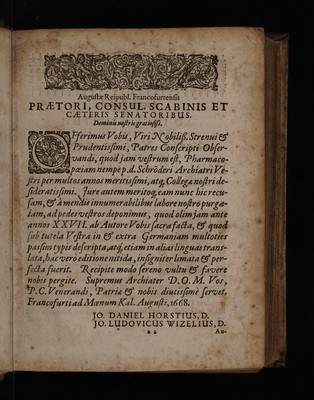 Augustæ Reipubl. Francofurtensis
PRÆTORI, CONSUL. SCABINIS ET
CÆTERIS SENATORIBUS.
Dominis nostris gratiosiss.
OFferimus Vobis, Viri Nobiliss. Strenui &
Prudentissimi, Patres Conscripti Obser-
vandi, quod jam vestrum est, Pharmaco-
pœiam nempe p.d. Schröderi Archiatri Ve-
stri per multos annos meritissimi, atq; Collega nostri de-
sideratissimi. Jure autem meritoq; eam nunc hic recu-
sam, & à mendis innumerabilibus labore nostro purga-
tam, ad pedes vestros deponimus, quod olim jam ante
annos XXVII. ab Autore Vobis sacra facta, & quod
sub tutela Vestra in & extra Germaniam multoties
passim typis descripta, atq; etiam in alias linguas trans-
lata, hac verò editione nitida, insigniter limata & per-
fecta fuerit. Recipite modo sereno vultu & favere
nobis pergite. Supremus Archiater D.O.M. Vos,
P.C. Venerandi, Patriæ & nobis diutissimè servet.
Francofurti ad Mœnum Kal. Augusti, 1668.
JO. DANIEL HORSTIUS, D.
JO. LUDOVICUS WIZELIUS, D.
a 2 Au-